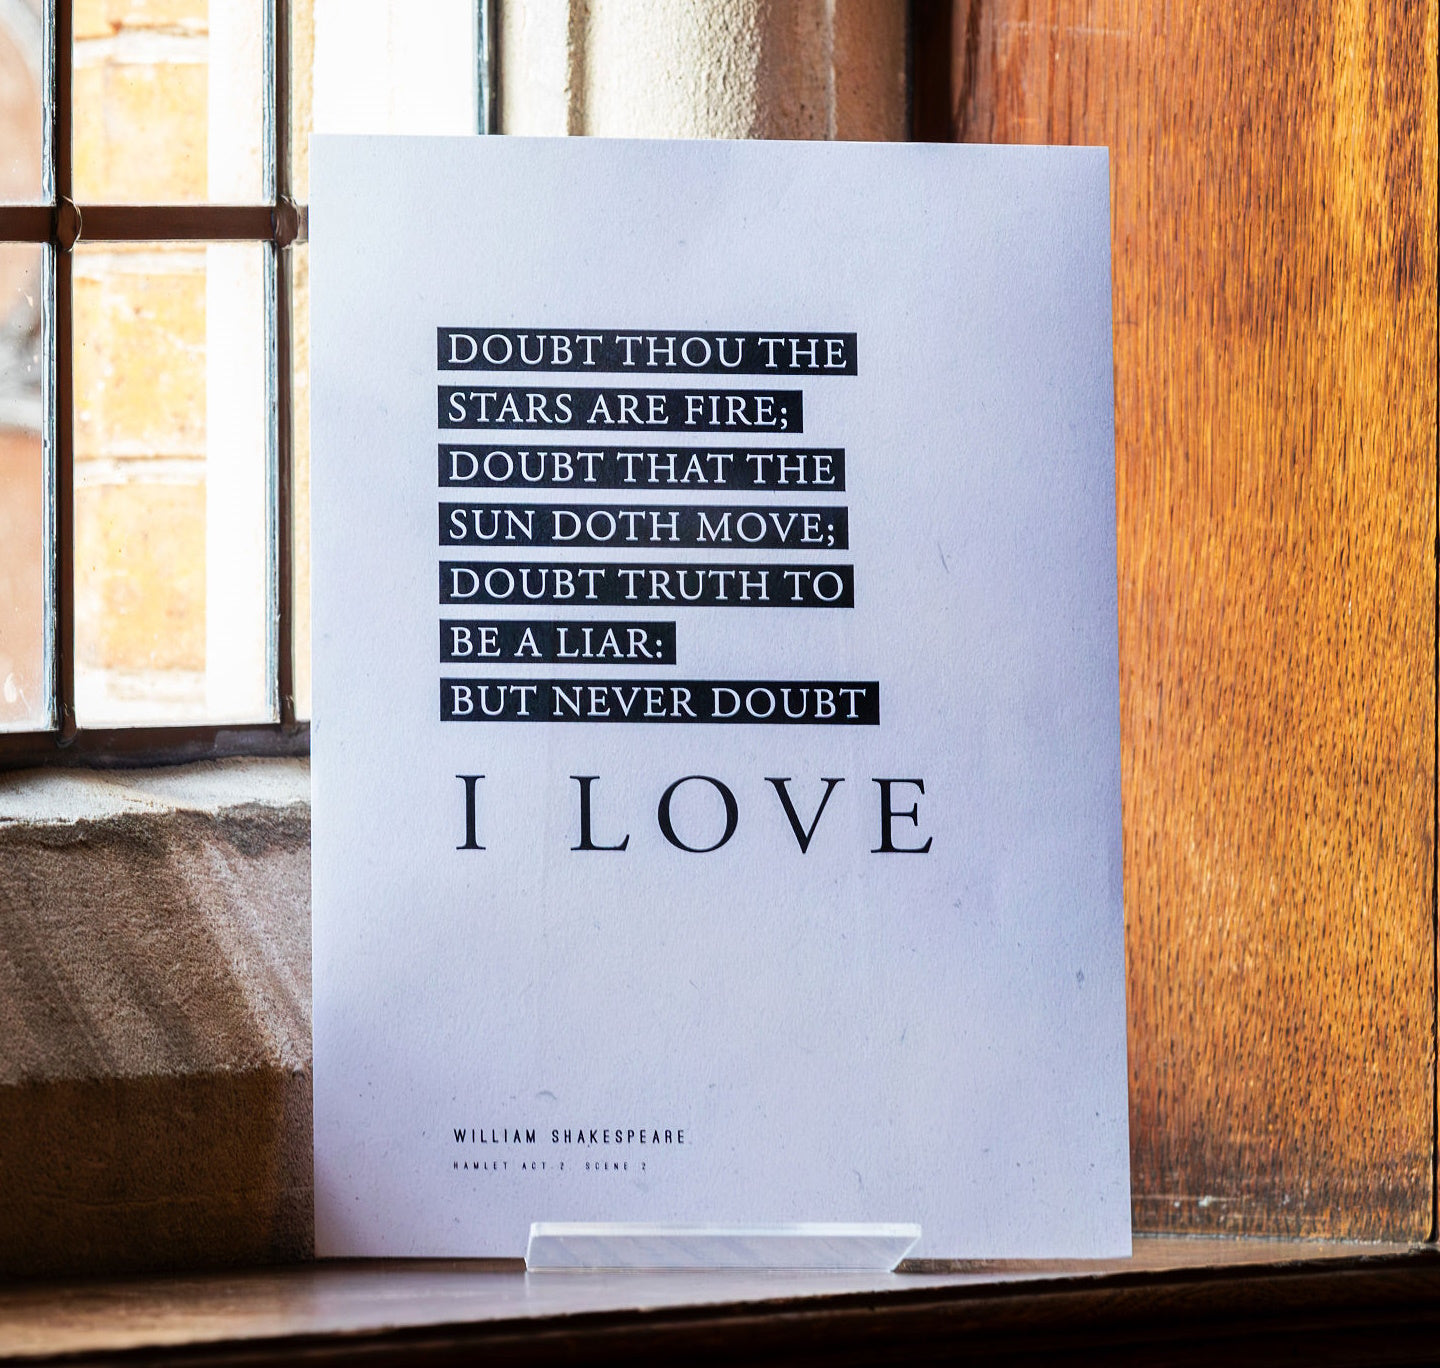 DOUBT THOU THE
STARS ARE FIRE;
DOUBT THAT THE
SUN DOTH MOVE;
DOUBT TRUTH TO
BE A LIAR:
BUT NEVER DOUBT
I LOVE
WILLIAM SHAKESPEARE
HAMLET ACT 2 SCENE 2